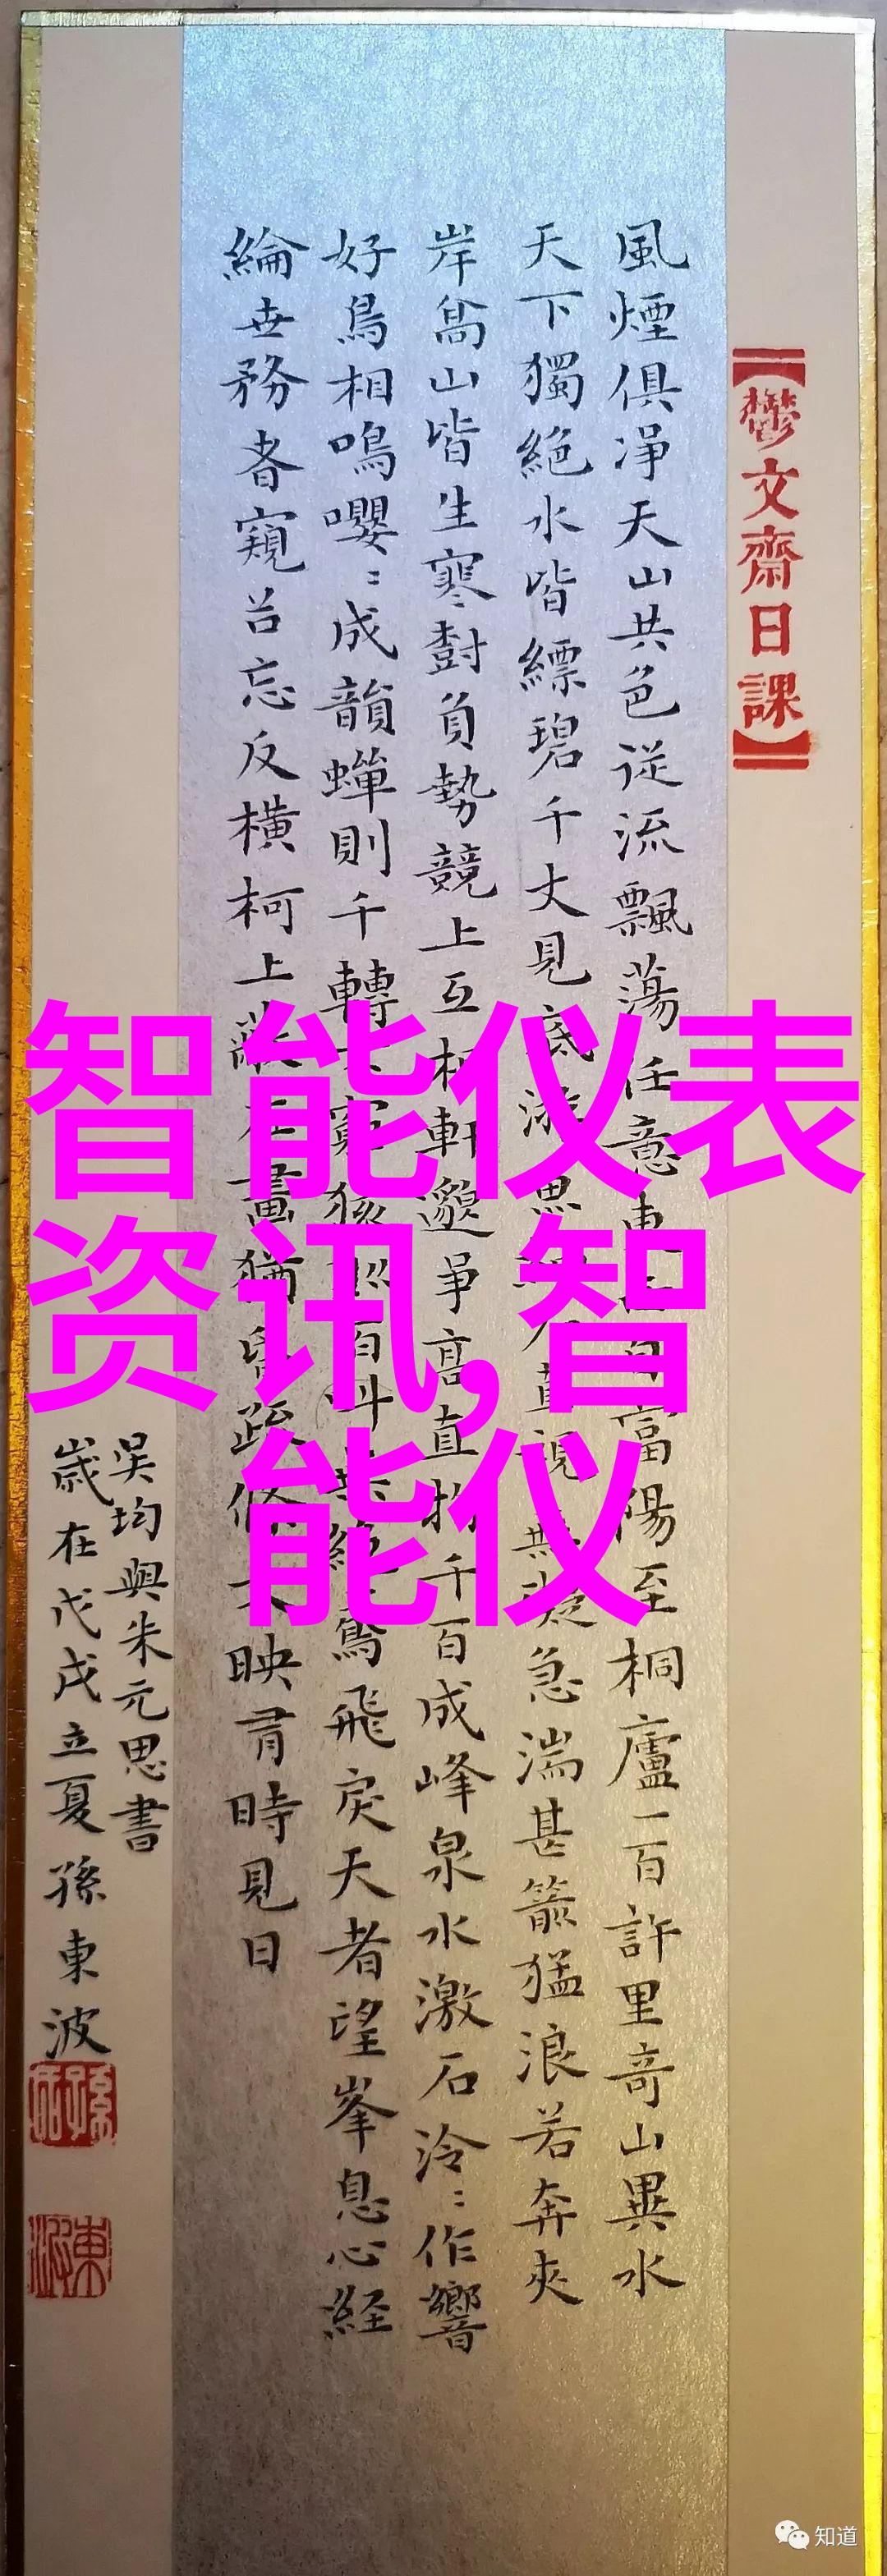 【鬱文齋日課】
風煙俱凈天山共色從流飄蕩任意東富陽至桐廬一百許里奇山異水
天下獨絕水皆縹碧千丈見底游直視無急湍甚箭猛浪若奔夾
岸高山皆生寒樹負勢競上互相軒邈爭高直指千百成峰泉水激石泠〻作響
好鳥相鳴嚶〻成韻蟬則千轉窮猨百叫鳶飛戾天者望峯息心経
綸世務者窺谷忘反橫柯上蔽在晝猶昏疏條映有時見日
吳均與朱元思書
歲在戊戌立夏孫東波
智能仪表
资讯,智
能仪
知道